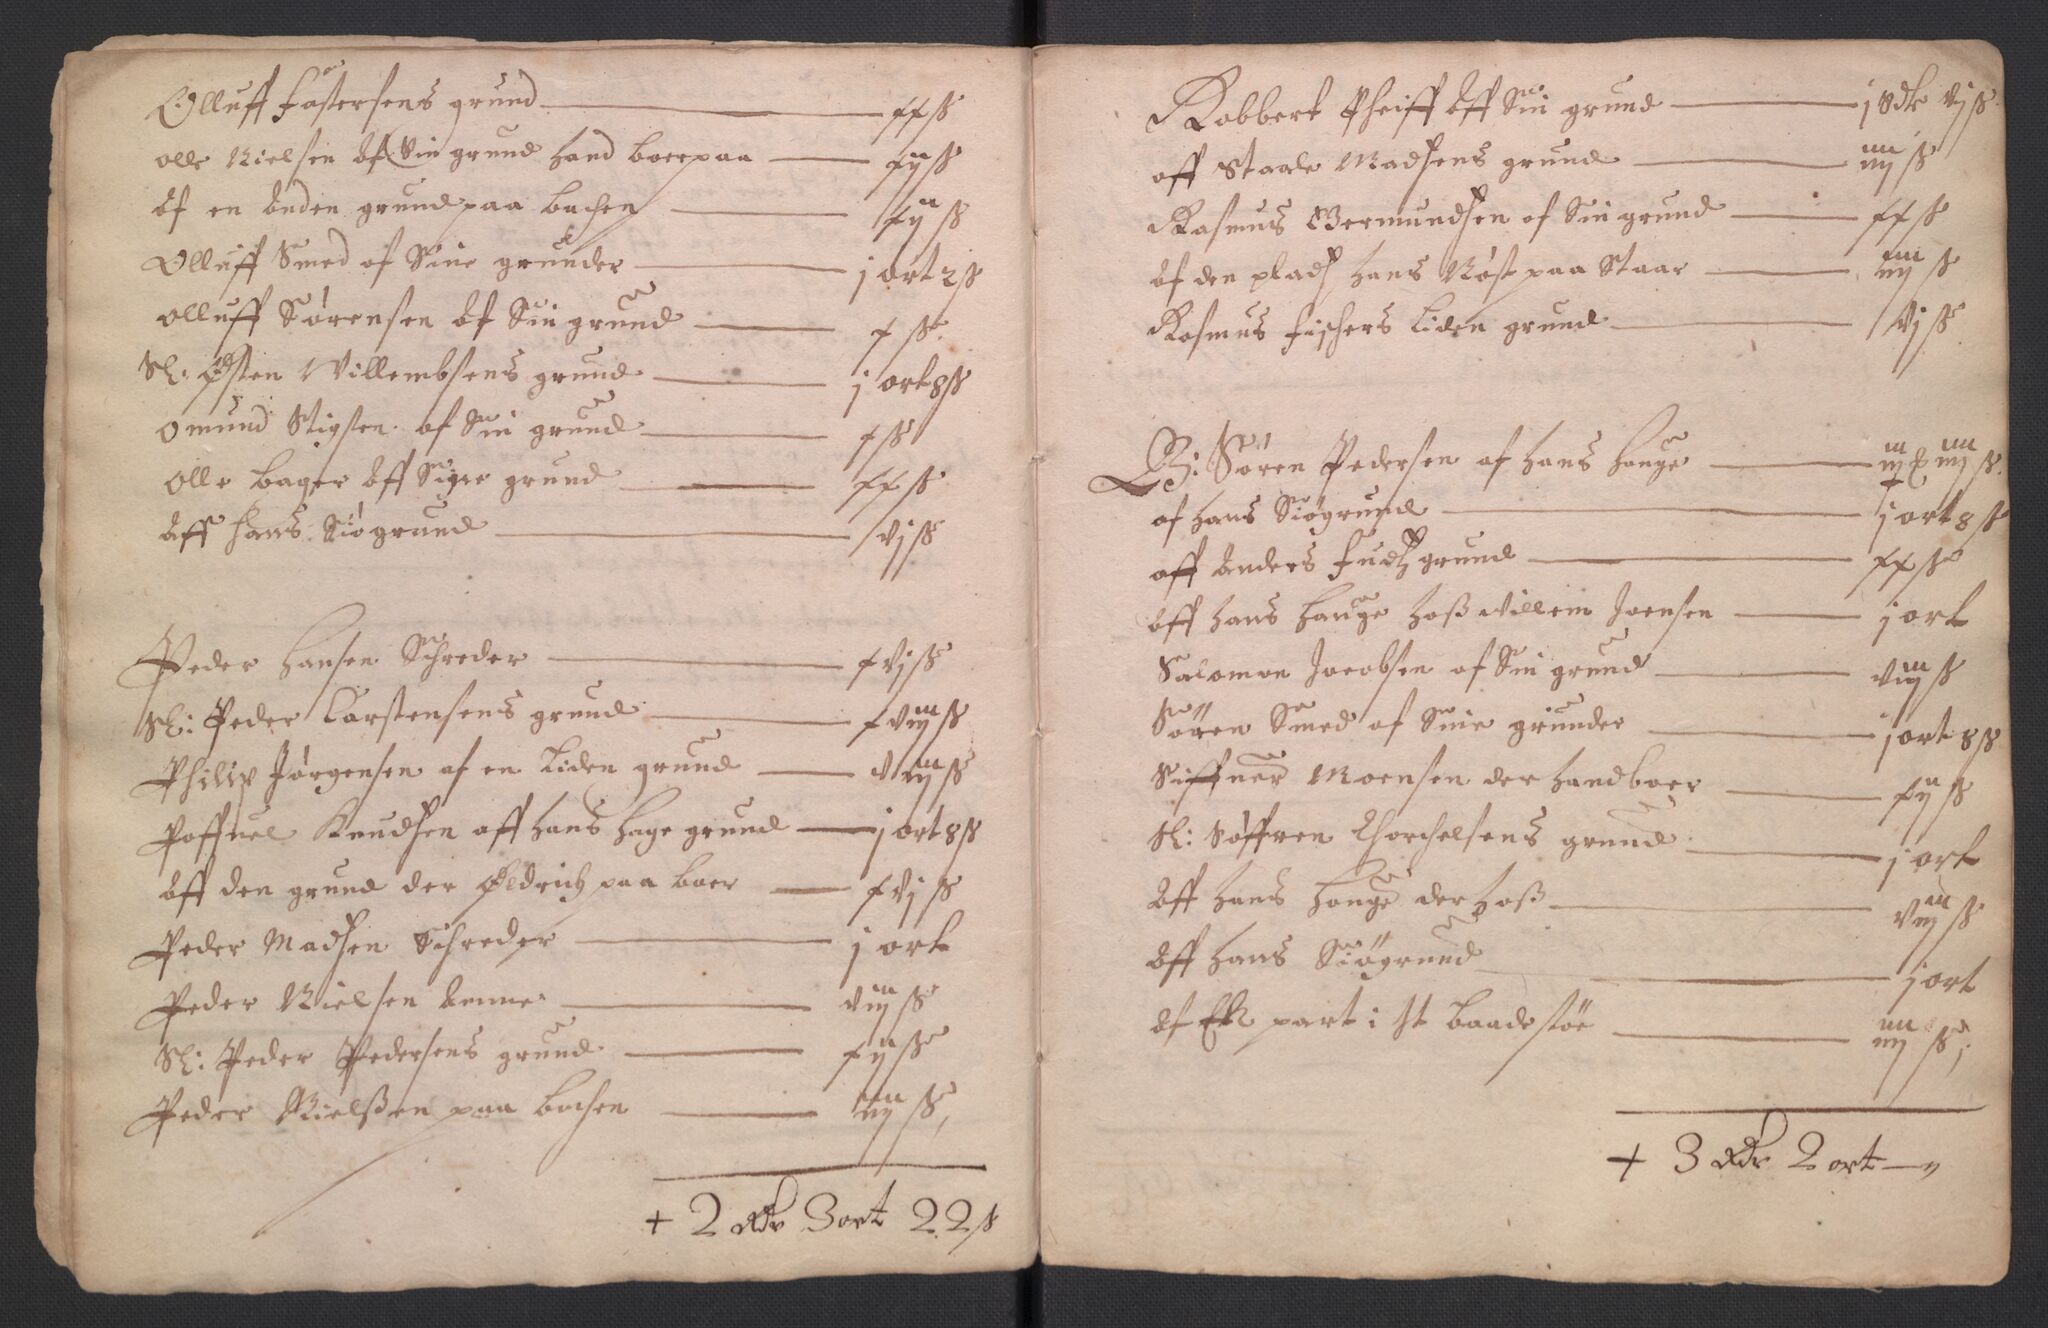 Olluff Fastersens grund — xx ß
olle Nielsen af Sin grund hand boer paa — xij ß
Af en Anden grund paa bachen — xij ß
Olluff Smed af Sine grunder — j ort 2 ß
olluff Sørensen Af Sin grund — x ß
Sl: Østen Villembsens grund — j ort 8 ß
omund Stigsen af Sin grund — x ß
olle bager Aff Sigre grund — xx ß
Aff hans Siøgrund — vj ß
Peder Hansen Schreder — xvj ß
Sl: Peder Carstensens grund — xviij ß
Philip Jørgensen af en Liden grund — viij ß
Poffuel Knudsen aff hans hage grund — j ort 8 ß
Aff den grund der Oldrich paa boer — xvj ß
Peder Madsen Schreder — j ort
Peder Nielsen Amme — viij ß
Sl: Peder Pedersens grund — xij ß
Peder Nielsen paa bachen — iiij ß
+ 2 Rdr 3 ort 22 ß
Robbert Pheiff Aff Sin grund — j Rdr vj ß
aff Staale Madsens grund — iiij ß
Rasmus Germundsen af Sin grund — xx ß
Af den plads hans Nøst paa Staar — iiij ß
Rasmus fischers Liden grund — vj ß
Sören Pedersen af hans hauge — iij iiij ß
af hans Siögrund — j ort 8 ß
aff Anders grund — xx ß
Aff hans hauge hoß Villem Joensen — j ort
Salomon Jacobsen af Sin grund — viij ß
Sören Smed af Sine grunder — j ort 8 ß
Siffuer Moensen der hand boer — xij ß
Sl: Söffren Thorchelsens grund — j ort
Aff hans hauge der hoß — viij ß
Aff hans Siögrund — j ort
Af Eth part i It baadestöe — iiij ß
+ 3 Rdr 2 ort —